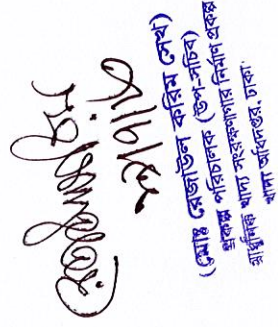 (মোঃ রেজাউল করিম সেখ)
প্রকল্প পরিচালক (উপ-সচিব)
আধুনিক খাদ্য সংরক্ষণাগার নির্মাণ প্রকল্প
খাদ্য অধিদপ্তর, ঢাকা।